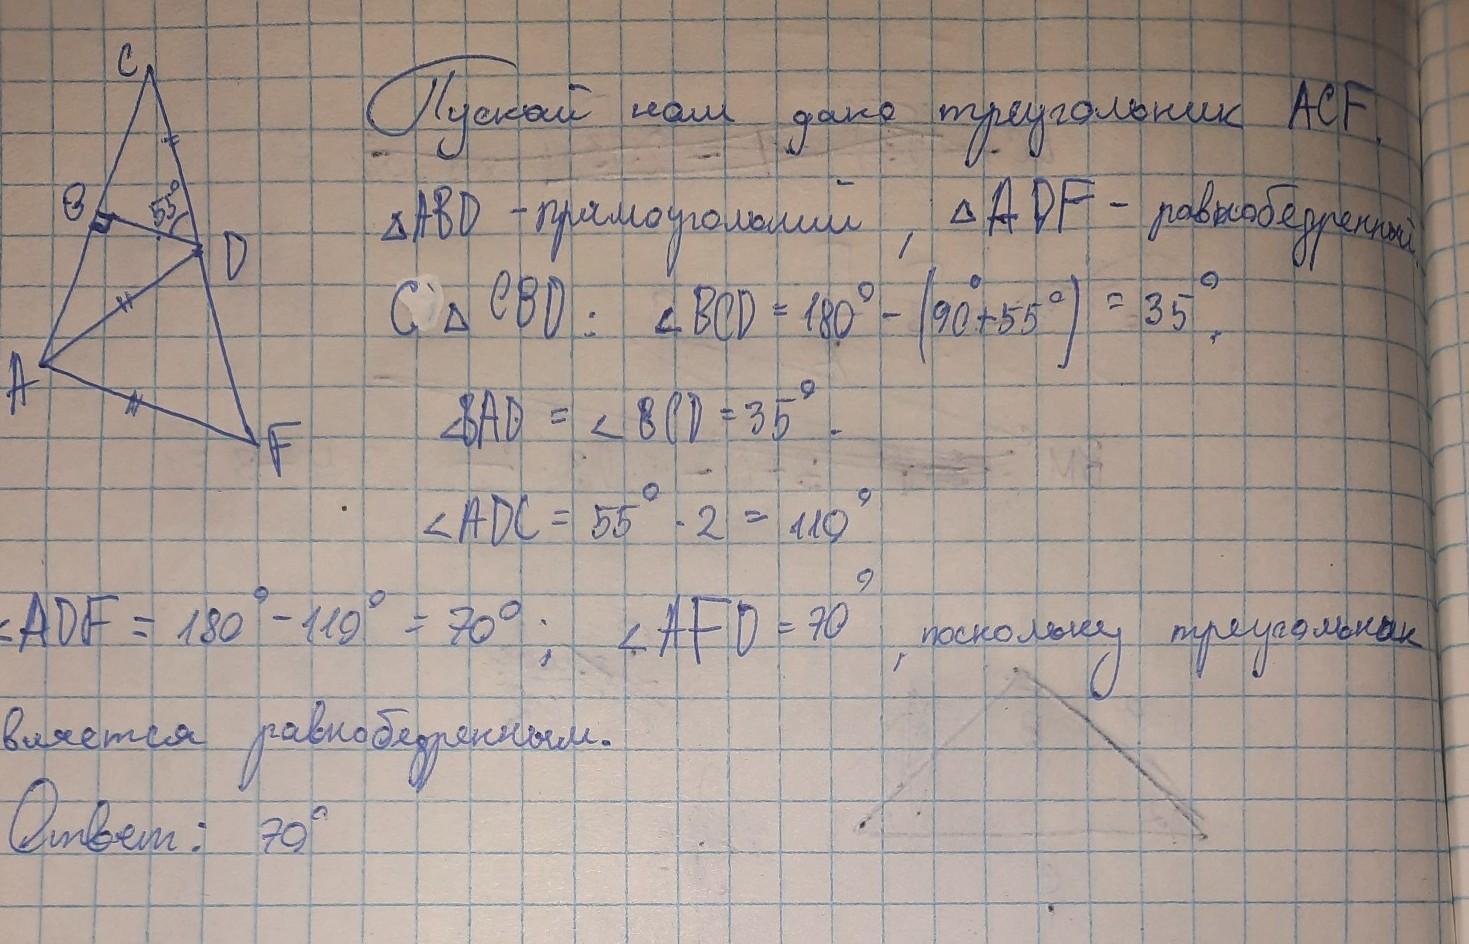 C
B
55°
D
A
F
Пускай нам дано треугольник ACF.
△ABD - прямоуголний, △ADF - равнобедренный.
С △ CBD: ∠BCD = 180° - (90°+55°) = 35°;
∠BAD = ∠BCD = 35°.
∠ADC = 55° · 2 = 110°
∠ADF = 180° - 110° = 70°; ∠AFD = 70°, поскольку треугольник
вляется равнобедренным.
Ответ: 70°